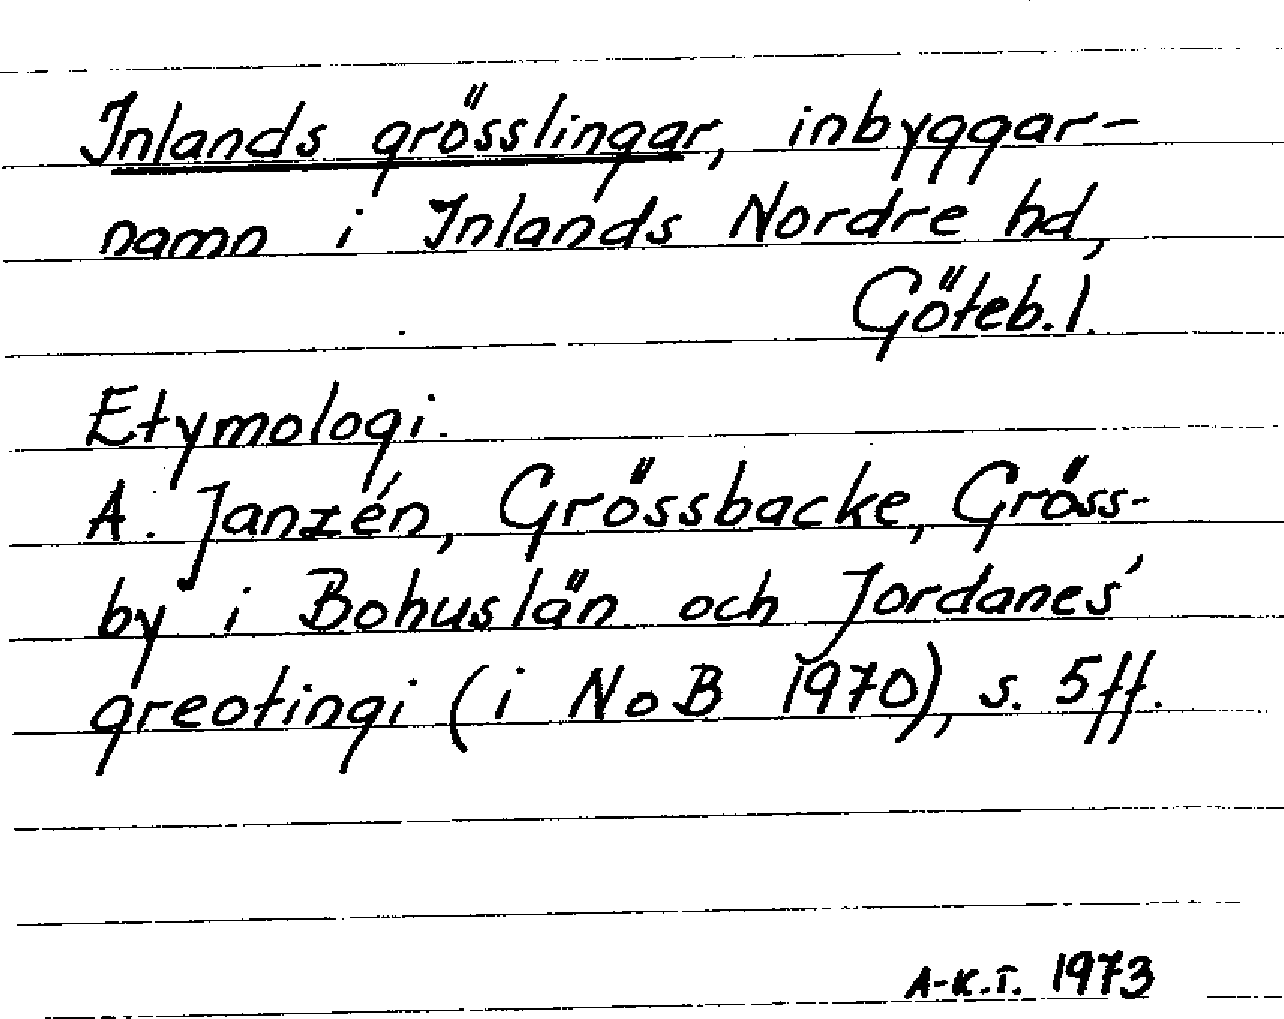 Inlands grösslingar, inbyggar-
namn i Inlands Nordre hd,
Göteb. l.
Etymologi.
A. Janzén, Grössbacke, Gröss-
by i Bohuslän och Jordanes'
greotingi (i NoB 1970), s. 5ff.
A-K.T. 1973